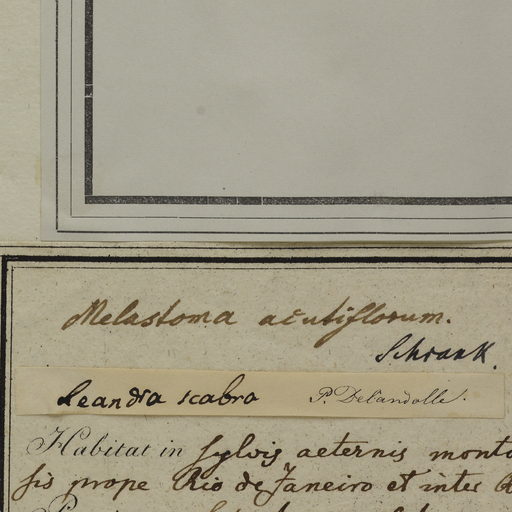 Melastoma acutiflorum.
Schrank.
Leandra scabra P. Decandolle.
Habitat in sylvis aeternis
sis prope Rio de Janeiro et inter